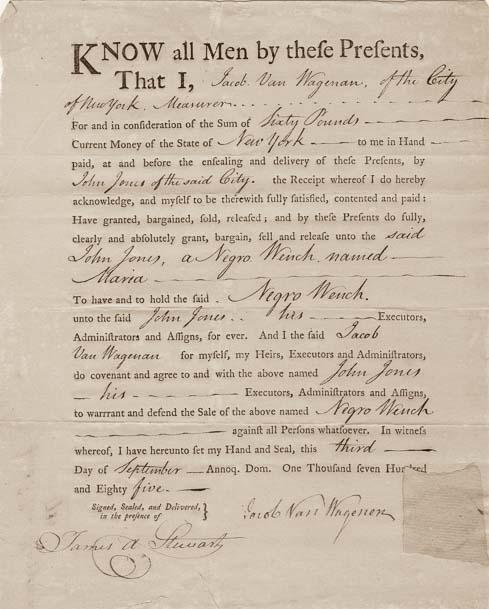 KNOW all Men by theſe Preſents,
That I, Jacob Van Wagenan, of the City
of New York, Measurer
For and in conſideration of the Sum of Sixty Pounds
Current Money of the State of New York to me in Hand
paid, at and before the enſealing and delivery of theſe Preſents, by
John Jones of the said City. the Receipt whereof I do hereby
acknowledge, and myſelf to be therewith fully ſatisfied, contented and paid:
Have granted, bargained, ſold, releaſed; and by theſe Preſents do fully,
clearly and abſolutely grant, bargain, ſell and releaſe unto the said
John Jones, a Negro Wench named
Maria
To have and to hold the ſaid Negro Wench.
unto the ſaid John Jones.. his Executors,
Adminiſtrators and Aſſigns, for ever. And I the ſaid Jacob
Van Wagenan for myſelf, my Heirs, Executors and Adminiſtrators,
do covenant and agree to and with the above named John Jones
his Executors, Adminiſtrators and Aſſigns,
to warrrant and defend the Sale of the above named Negro Wench
againſt all Perſons whatſoever. In witneſs
whereof, I have hereunto ſet my Hand and Seal, this third
Day of September Annoq. Dom. One Thouſand ſeven Hundred
and Eighty five.
Signed, Sealed, and Delivered,
in the preſence of }
Jacob Van Wagenen
James A Stewart